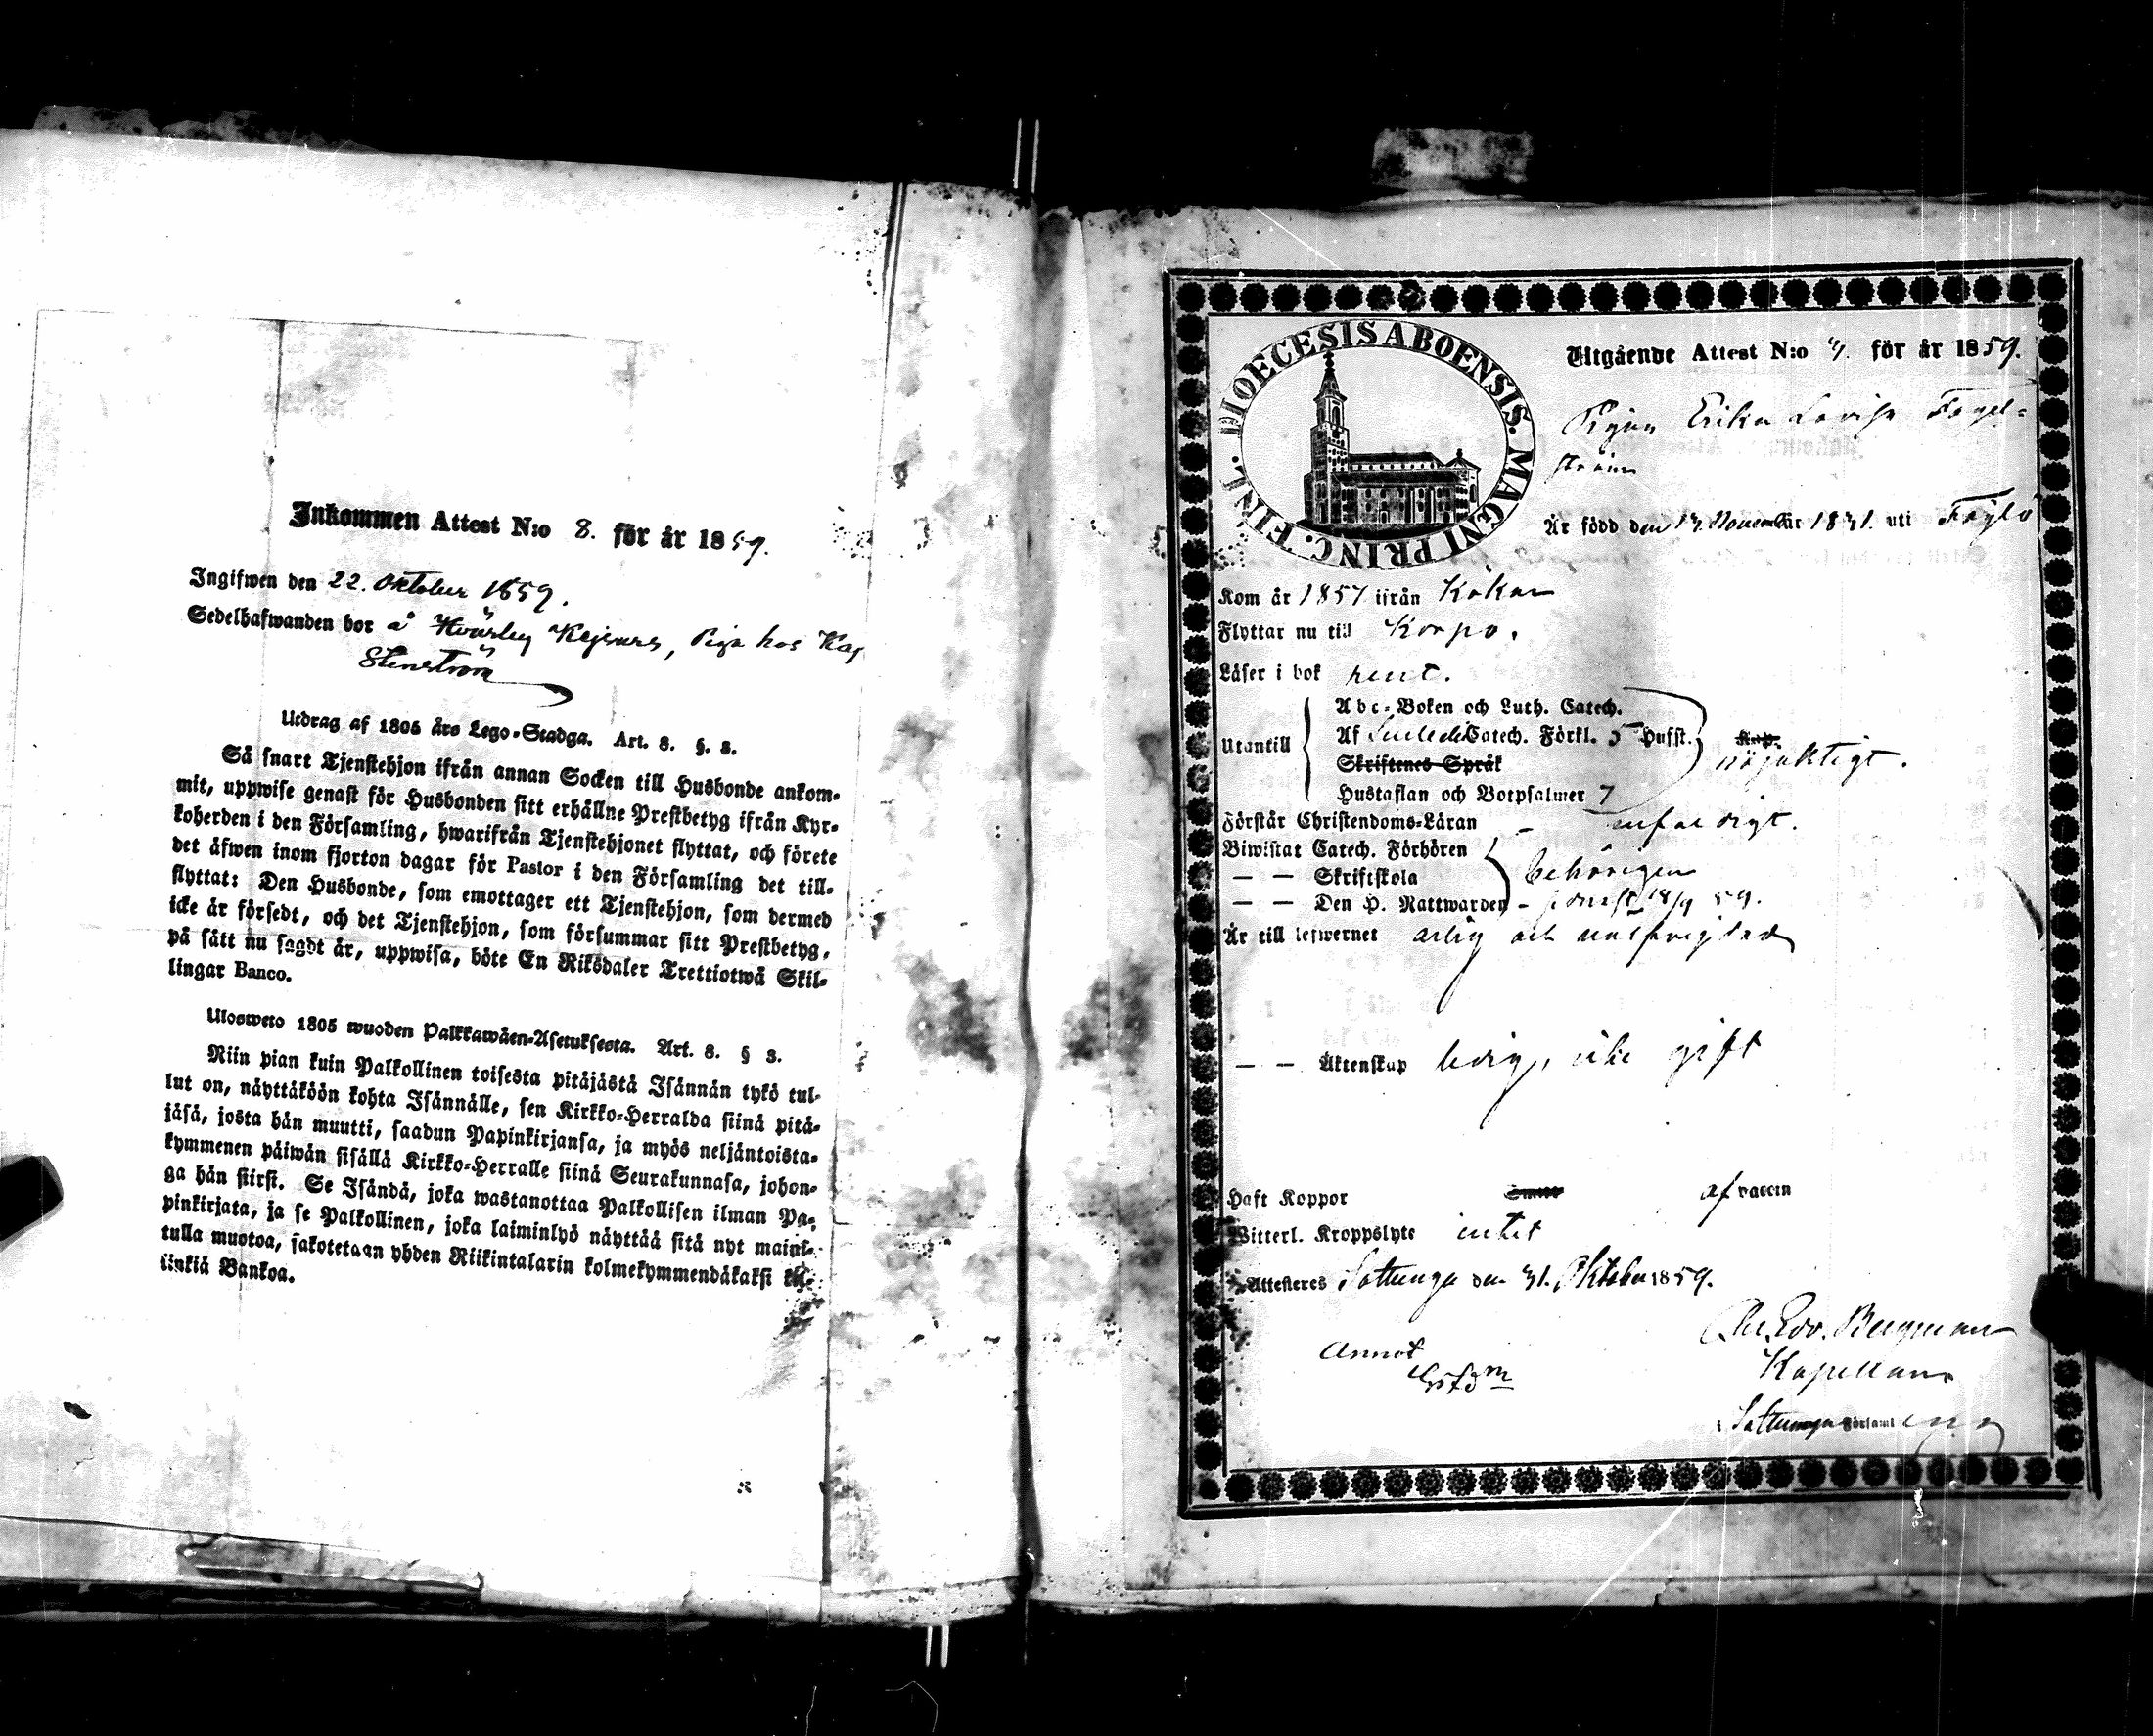 Inkommen Attest N:o 8. för år 1859.
Ingifwen den 22. oktober 1859.
Sedelhafwanden bor å Kejsars, Piga hos
Stenström
Utdrag af 1805 års Lego-Stadga. Art. 8. §. 3.
Så snart Tjenstehjon ifrån annan Socken till Husbonde ankom-
mit, uppwise genast för Husbonden sitt erhållne Prestbetyg ifrån Kyr-
koherden i den Församling, hwarifrån Tjenstehjonet flyttat, och förete
det äfwen inom fjorton dagar för Pastor i den Församling det till-
flyttat: Den Husbonde, som emottager ett Tjenstehjon, som dermed
icke är försedt, och det Tjenstehjon, som försummar sitt Prestbetyg,
på sätt nu sagdt är, uppwisa, böte En Riksdaler Trettiotwå Skil-
lingar Banco.
Ulosweto 1805 wuoden Palkkawäen-Asetuksesta. Art. 8. § 3.
Niin pian kuin Palkollinen toisesta pitäjästä Isännän tykö tul-
lut on, näyttäköön kohta Isännälle, sen Kirkko-Herralda siinä pitä-
jäsä, josta hän muutti, saadun Papinkirjansa, ja myös neljäntoista-
kymmenen päiwän sisällä Kirkko-Herralle siinä Seurakunnasa, johon-
ga hän siirsi. Se Isändä, joka wastanottaa Palkollisen ilman Pa-
pinkirjata, ja se Palkollinen, joka laiminlyö näyttää sitä nyt maini-
tulla muotoa, sakotetaan yhden Riikintalarin kolmekymmendäkaksi kil-
linkiä Bankoa.
DIOECESIS ABOENSIS. MAGNI PRINC. FINL.
Utgående Attest N:o för år 1859.
Pigan Erika Lovisa Fogel-
ström
Är född den November 1831. uti Föglö
Kom år 1857 ifrån Kökar
Flyttar nu till Korpo.
Läser i bok rent.
Utantill
Abc-Boken och Luth. Catech.
Af Catech. Förkl. 5 Hufst.
Skriftenes Språk
nöjaktigt.
Hustaflan och Botpsalmer 7
Förstår Christendoms-Läran - enfaldigt.
Biwistat Catech. Förhören
— — Skriftskola behörigen
— — Den H. Nattwarden - senast 18/9 59.
Är till lefwernet ärlig och
— — Äktenskap ledig, icke gift
Haft Koppor af vaccin
Witterl. Kroppslyte intet
Attesteres Sottunga den 31. Oktober 1859.
Edv. Bergman
Annot
Kapellan
i Sottunga Församl